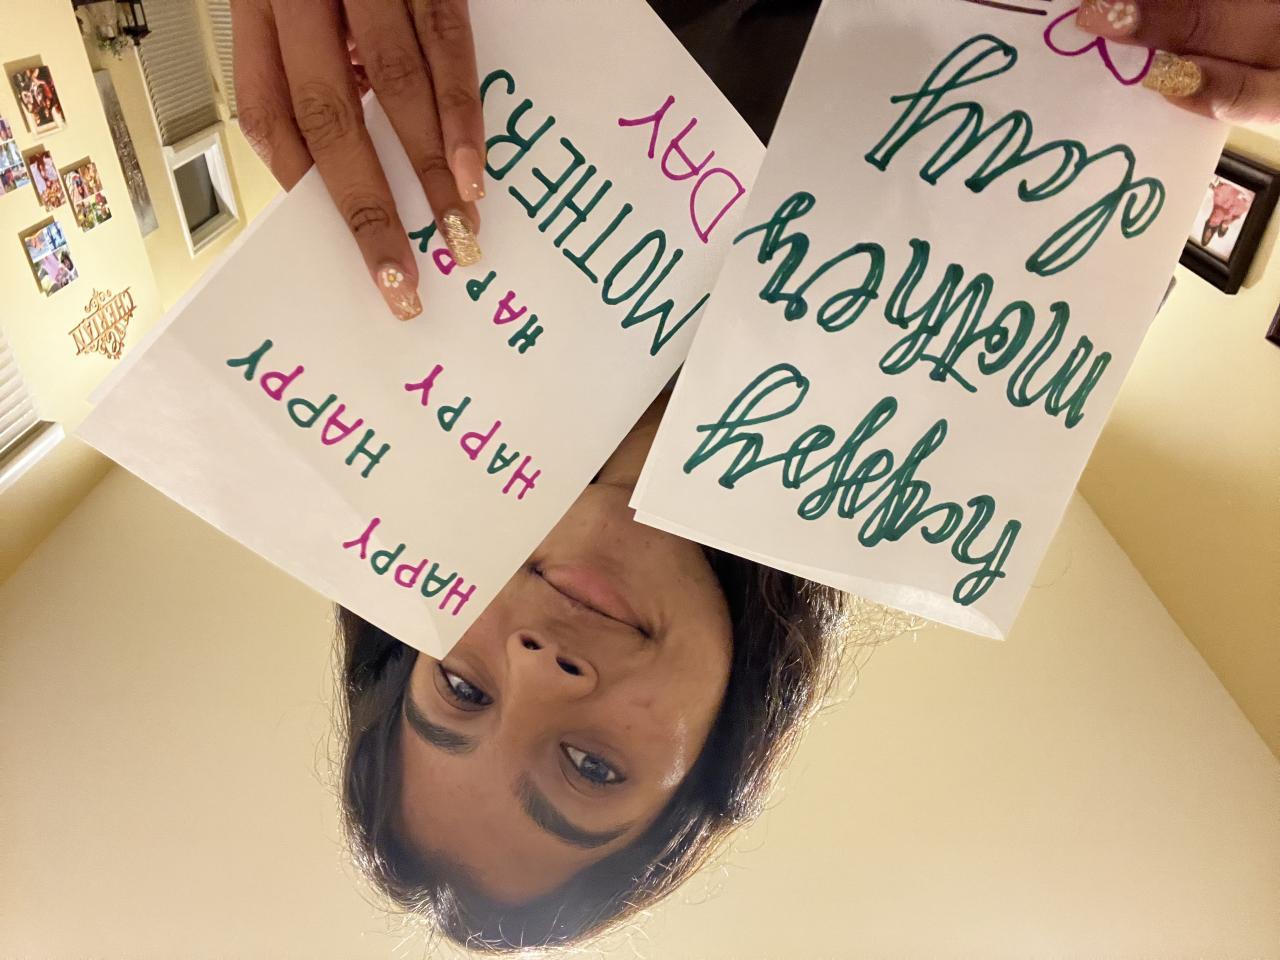 happy
mothers
day
HAPPY
HAPPY HAPPY
HAPPY
MOTHERS
DAY